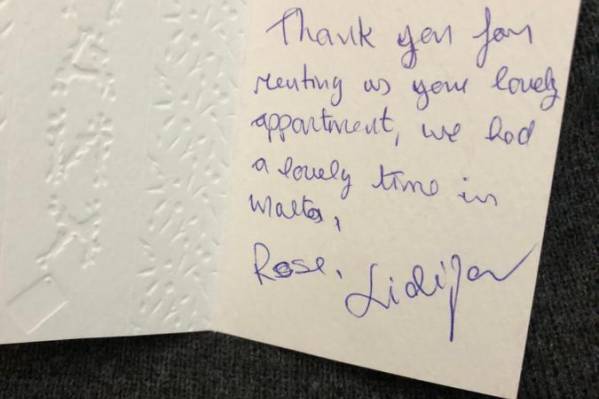 Thank you for
renting us your lovely
appartment, we had
a lovely time in
Malta,
Rose, Lidija